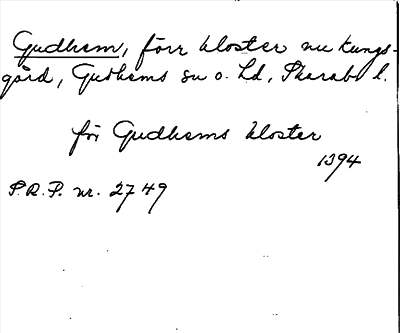 Gudhem, förr kloster nu kungs-
gård, Gudhems sn o. hd, Skarab. l.
för Gudhems kloster
1394
S.R.P. nr. 2749